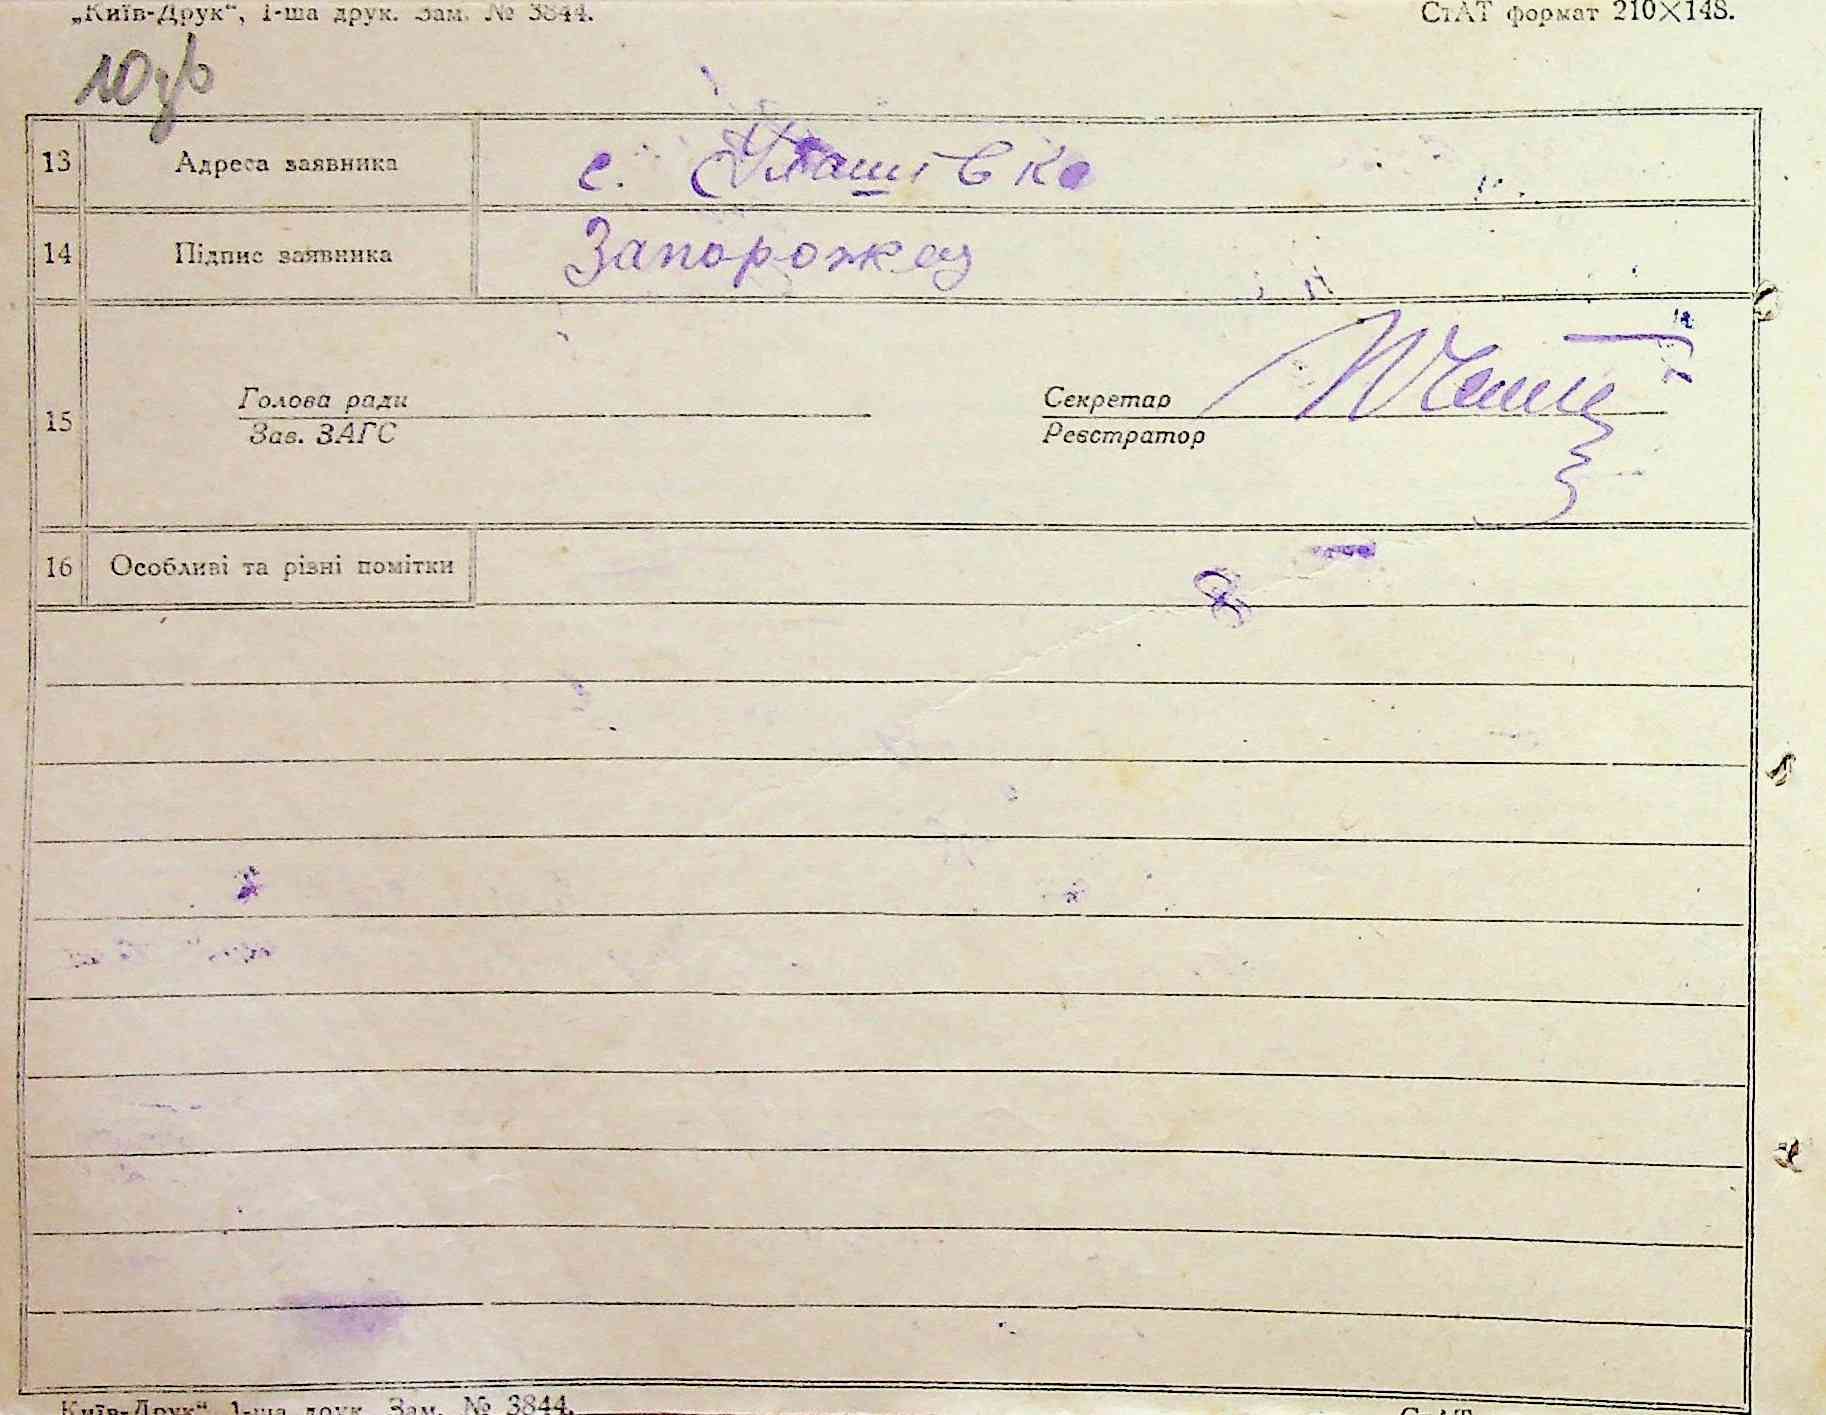 „Київ-Друк“, 1-ша друк. Зам. № 3844.
СтАТ формат 210×148.
13 Адреса заявника с. Улашівка
14 Підпис заявника Запорожец
15 Голова ради
Зав. ЗАГС
Секретар
Реєстратор
16 Особливі та різні помітки
Київ-Друк“, 1-ша друк. Зам. № 3844.
СтАТ